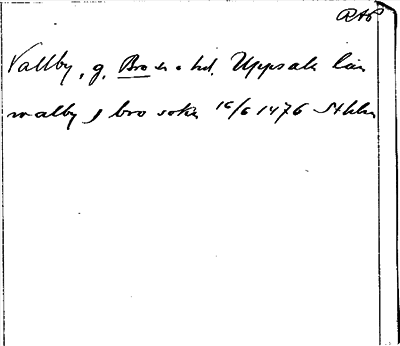 RAP
Vallby, g. Bro s. o hd. Uppsala län
walby j bro sokn 16/6 1476 Sthlm